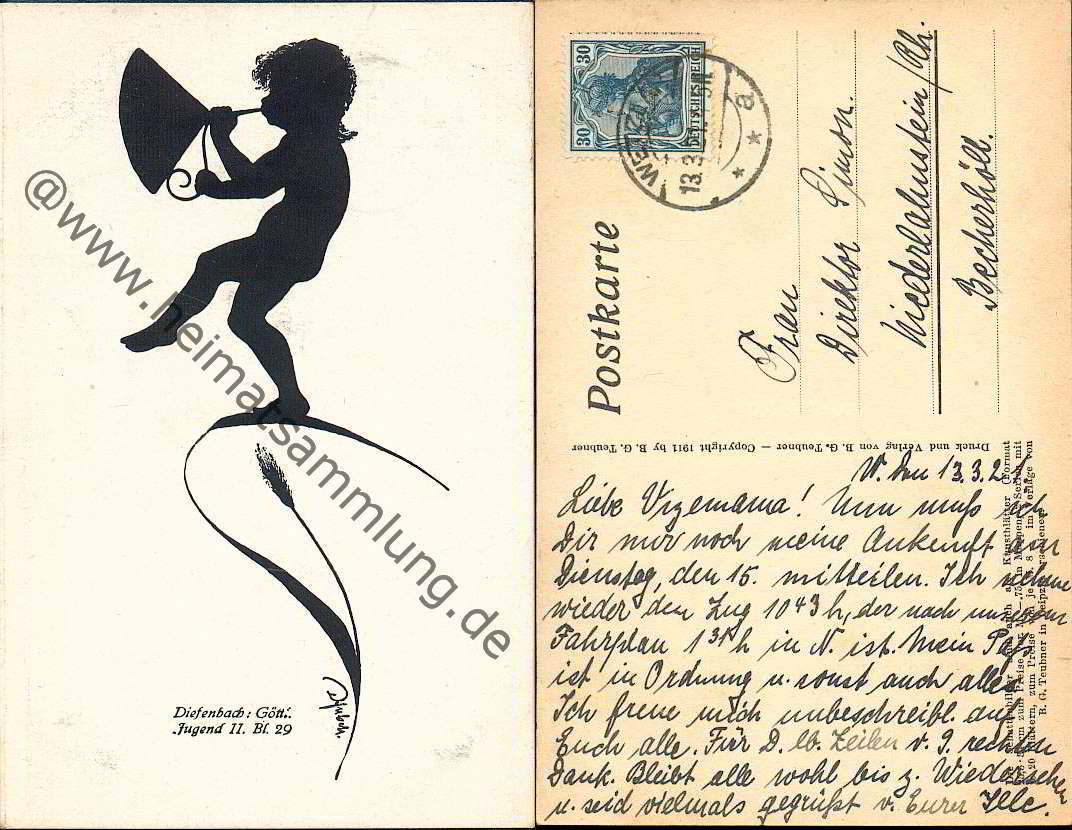 @www.heimatsammlung.de
Diefenbach: Göttl.
Jugend II. Bl. 29
30 30
DEUTSCHES REICH
13.3.
a
Postkarte
Frau
Direktor Simon.
Niederlahnstein/Rh.
Becherhöll.
Druck und Verlag von B. G. Teubner — Copyright 1911 by B. G. Teubner
W. den 13.3.2
Liebe Urgemama! Nun muß ich
Dir nur noch meine Ankunft am
Dienstag, den 15. mitteilen. Ich nehme
wieder den Zug 10 43 h, der nach unserem
Fahrplan 1 31 h in N. ist. Mein Paß
ist in Ordnung u. sonst auch alles.
Ich freue mich unbeschreibl. auf
Euch alle. Für D. lb. Zeilen v. 9. rechten
Dank. Bleibt alle wohl bis z. Wiedersehen
u. seid vielmals gegrüßt v. Eurer
B. G. Teubner in Leipzig erschienen